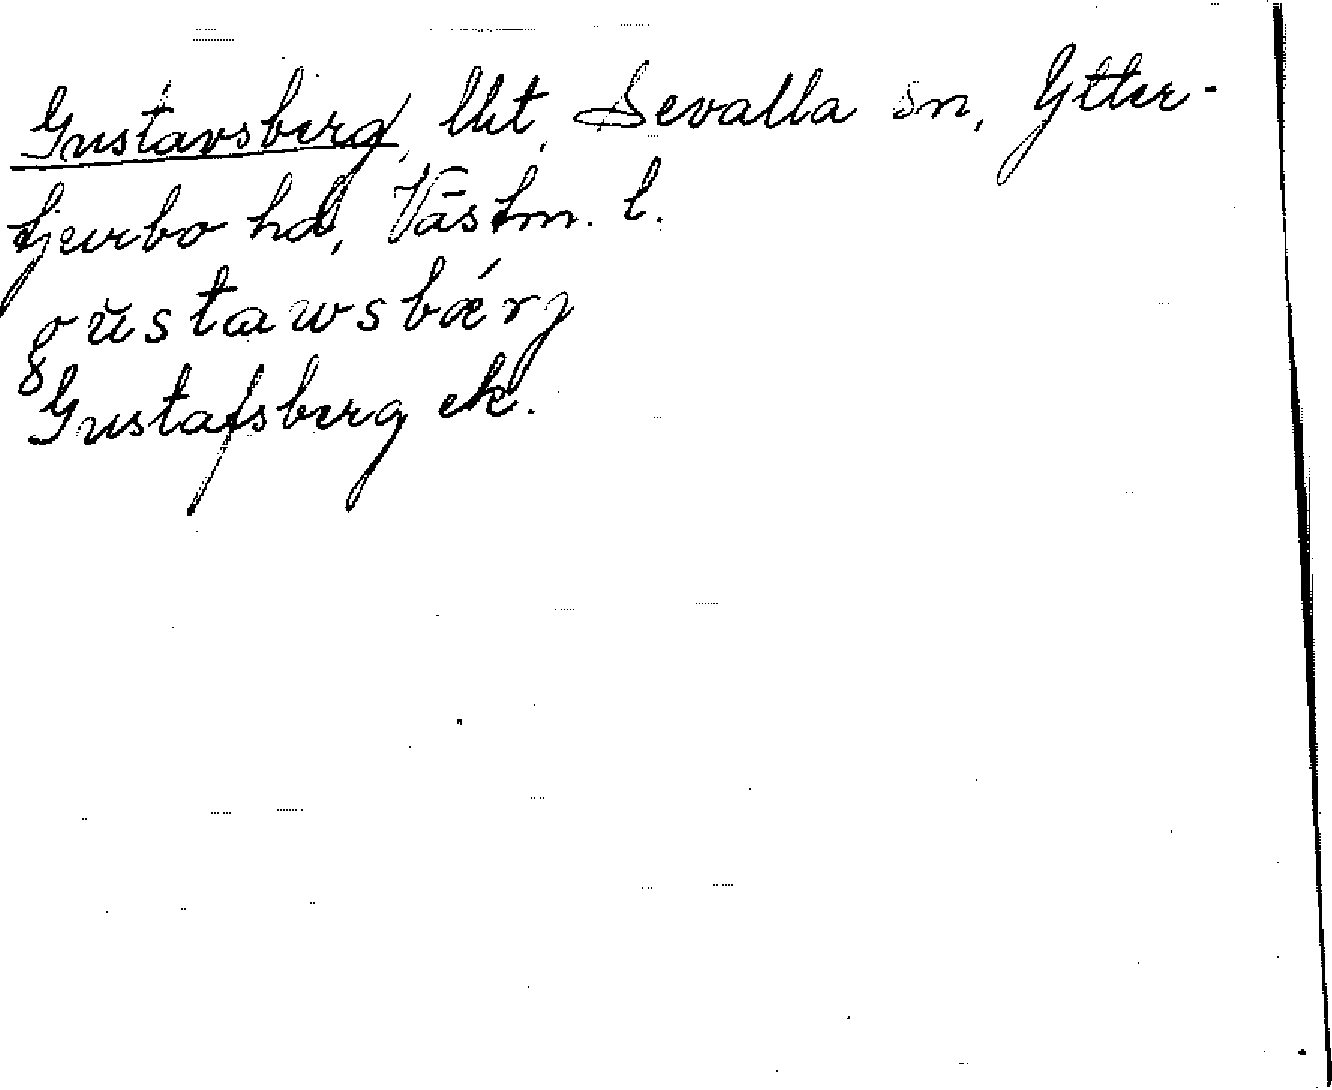 Gustavsberg, lht, Sevalla sn, Ytter-
tjurbo hd, Västm. l.
gŭstawsbǽrj
Gustafsberg ek.